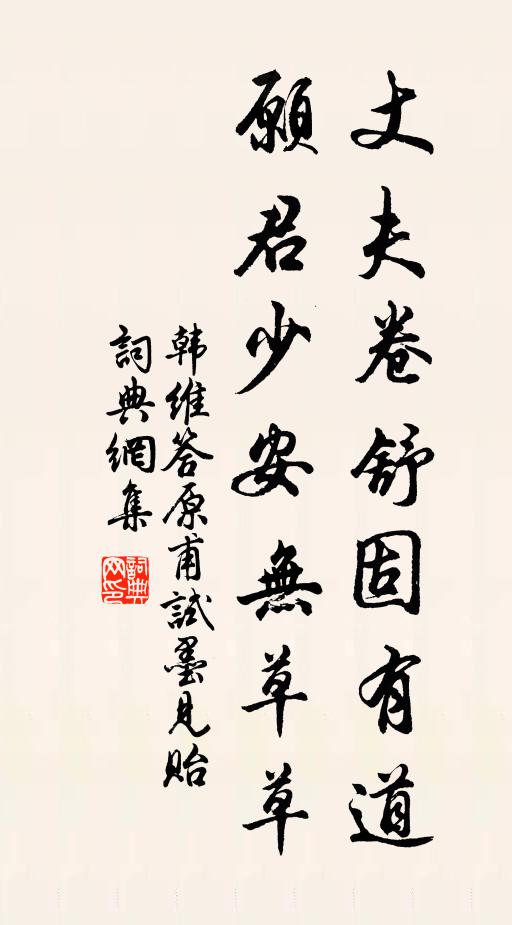 丈夫卷舒固有道
願君少安無草草
韩維答原甫試墨見貽
詞典網集
詞典网印